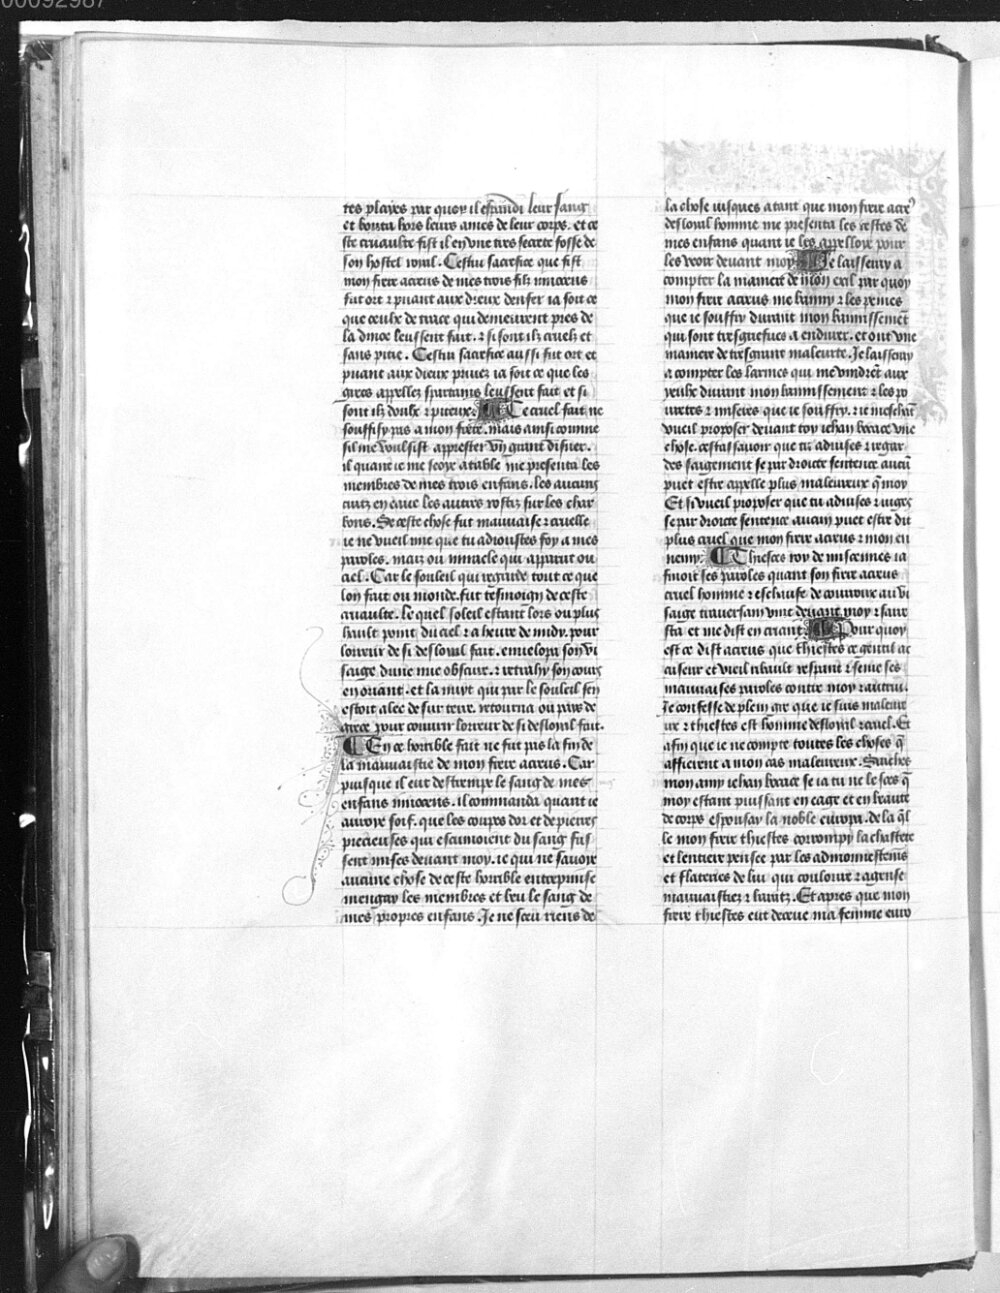 00092987
tes playes par quoy il espandi leur sang
et bouta hors leurs ames de leur corps. et ce
ste cruaulte fist il en vne tres secrete fosse de
son hostel roial. Cestui sacrefice que fist
mon frere acreus de mes trois filz innocens
fut ort ⁊ puant aux dieux denfer ia soit ce
que ceulx de trace qui demeurent pres de
la dinoe leussent fait. ⁊ si sont ilz cruelz et
sans pitie. Cestui sacrefice aussi fut ort et
puant aux dieux priuez ia soit ce que les
grecs appellez spartains leussent fait et si
sont ilz doubz ⁊ piteux. Ce cruel fait ne
souffisy pas a mon frere. mais ainsi comme
sil me voulsist apprester vn grant disner.
il quant ie me seoye a table me presenta les
membres de mes trois enfans. les aucuns
cuitz en eaue les autres rostiz sur les char
bons. Se ceste chose fut mauuaise ⁊ cruelle
ie ne vueil mie que tu adioustes foy a mes
paroles. maiz ou miracle qui apparut ou
ciel. Car le souleil qui regarde tout ce que
lon fait ou monde. fut tesmoign de ceste
cruaulte. le quel soleil estant lors ou plus
hault point du ciel ⁊ a heure de midy. pour
lorreur de si desloyal fait. enuelopa son vi
saige dune nue obscure. ⁊ retrahy son cours
en oriant. et la nuyt qui par le souleil sen
estoit alee de sur terre. retourna ou pais de
grece pour couurir lorreur de si desloyal fait.
En ce horrible fait ne fut pas la fin de
la mauuaistie de mon frere acreus. Car
puisque il eut destrempe le sang de mes
enfans innocens. il commanda quant ie
auroye soif. que les coupes dor et de pierres
precieuses qui escumoient du sang fus
sent mises deuant moy. ie qui ne sauoye
aucune chose de ceste horrible entreprinse
mengay les membres et beu le sang de
mes propres enfans. Je ne sceu riens de
la chose iusques atant que mon frere acre
desloyal homme me presenta les testes de
mes enfans quant ie les appelloye pour
les veoir deuant moy. Je laisseray a
compter la maniere de mon exil par quoy
mon frere acreus me banny ⁊ les peines
que ie souffry durant mon bannissement
qui sont tresgriefues a endurer. et ont vne
maniere de tresgrant maleurte. Je laisseray
a compter les larmes qui me vindrēt aux
yeulx durant mon bannissement ⁊ les po
uretes ⁊ miseres que ie souffry. ⁊ ie meschāt
vueil proposer deuant toy iehan bocace vne
chose. cestassauoir que tu aduises ⁊ regar
des saigement se par droicte sentence aucū
puet estre appelle plus maleureux q̄ moy
Et si vueil proposer que tu aduises ⁊ iuges
se par droicte sentence aucun puet estre dit
plus cruel que mon frere acreus ⁊ mon en
nemy. Thiestes roy de miscennes ia
finoit ses paroles quant son frere acreus
cruel homme ⁊ eschaufe de courroux au vi
saige trauersam vint deuant moy ⁊ saure
sta et me dist en criant. Pour quoy
est ce dist acreus que thiestes ce gentil ac
cuseur et vieil ribault respant ⁊ seme ses
mauuaises paroles contre moy ⁊ autrui.
Je confesse de plein gre que ie suis maleur
ux ⁊ thiestes est homme desloyal ⁊ cruel. Et
afin que ie ne compte toutes les choses q̄
affierent a mon cas maleureux. Saiches
mon amy iehan bocace se ia tu ne le sces q̄
moy estant puissant en eage et en beaute
de corps espousay la noble europa. de la q̄l
le mon frere thiestes corrompy la chastete
et lentiere pensee par les admonnestemēs
et flateries de lui qui couloure ⁊ agense
mauuaistiez ⁊ baratz. Et apres que mon
frere thiestes eut deceue ma femme euro